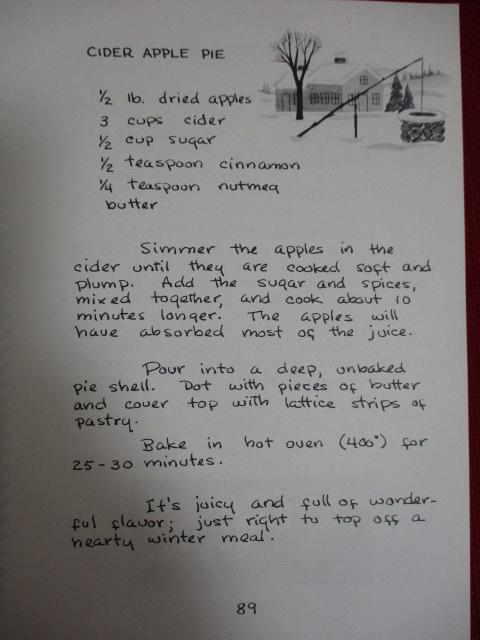 CIDER APPLE PIE
½ lb. dried apples
3 cups cider
½ cup sugar
½ teaspoon cinnamon
¼ teaspoon nutmeg
butter
Simmer the apples in the
cider until they are cooked soft and
plump. Add the sugar and spices,
mixed together, and cook about 10
minutes longer. The apples will
have absorbed most of the juice.
Pour into a deep, unbaked
pie shell. Dot with pieces of butter
and cover top with lattice strips of
pastry.
Bake in hot oven (400°) for
25-30 minutes.
It's juicy and full of wonder-
ful flavor; just right to top off a
hearty winter meal.
89